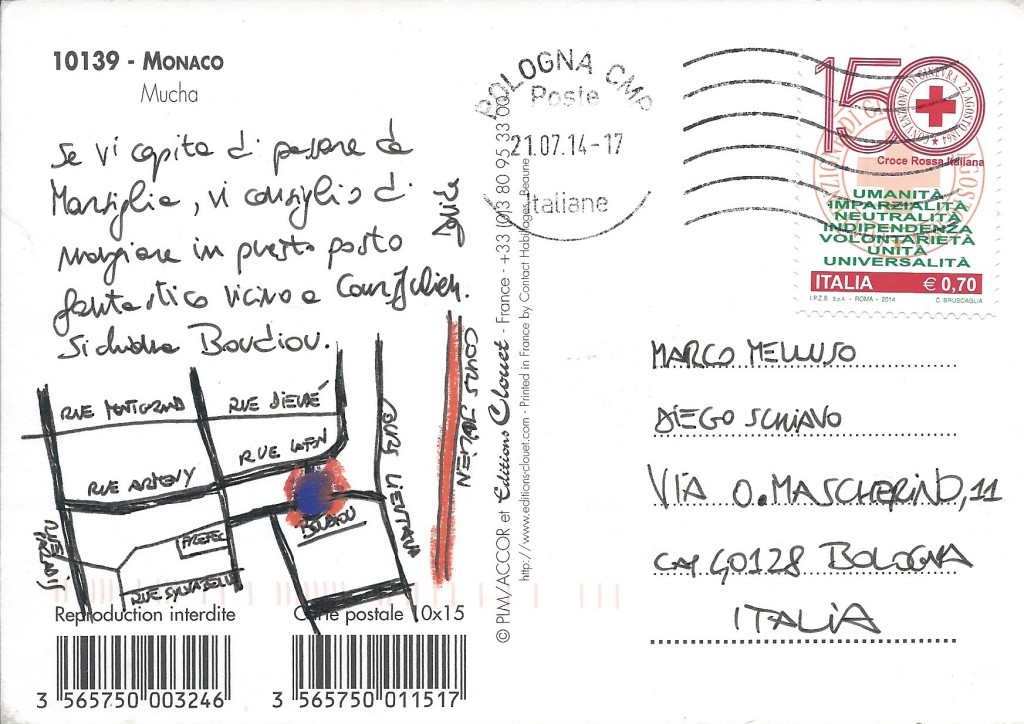 10139 - MONACO
Mucha
Se vi capita di passare da
Marsiglia, vi consiglio di
mangiare in questo posto
fantastico vicino a Cours Julien.
Si chiama Boudiou.
RUE MONTGRAND
RUE DIEUDÉ
RUE LAFON
RUE ARMENY
COURS LIEUTAUD
COURS JULIEN
BOUDIOU
PREFEC
RUE SYLVABELLE
Reproduction interdite
Carte postale 10x15
3 565750 003246
3 565750 011517
© PLM/ACCOR et Editions Clouet - France - +33 (0)3 80 95 33 00
http://www.editions-clouet.com - Printed in France by Contact Habillages, Beaune
BOLOGNA CMP
Poste
21.07.14-17
Italiane
150
CONVENZIONE DI GINEVRA 22 AGOSTO 1864
Croce Rossa Italiana
UMANITÀ
IMPARZIALITÀ
NEUTRALITÀ
INDIPENDENZA
VOLONTARIETÀ
UNITÀ
UNIVERSALITÀ
ITALIA € 0,70
I.P.Z.S. S.p.A. - ROMA - 2014 C. BRUSCAGLIA
MARCO MELLUSO
DIEGO SCHIAVO
VIA O. MASCHERINO, 11
CAP 40128 BOLOGNA
ITALIA